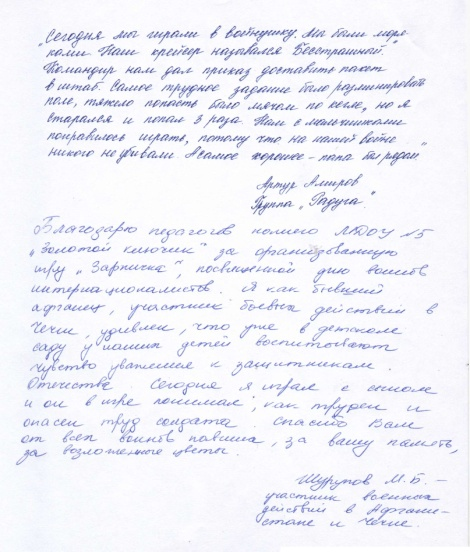 "Сегодня мы играли в войнушку. Мы были моря-
ками. Наш крейсер назывался Бесстрашный."
Командир нам дал приказ доставить пакет
в штаб. Самое трудное задание было разминировать
поле, тяжело попасть было мячом по кегле, но я
старался и попал 3 раза. Нам с мальчишками
понравилось играть, потому что на нашей войне
никого не убивали. А самое хорошее - папа был рядом"
Артур Амиров
Группа "Радуга".
Благодарю педагогов нашего МДОУ №5
"Золотой ключик" за организованную
игру "Зарничка", посвященной дню воинов
интернационалистов. Я как бывший
афганец, участник боевых действий в
Чечне, удивлен, что уже в детском
саду у наших детей воспитывают
чувство уважения к защитникам
Отечества. Сегодня я играл с сыном
и он в игре понимал, как труден и
опасен труд солдата. Спасибо Вам
от всех воинов павших, за вашу память,
за возложенные цветы.
Шурупов М.Б. -
участник военных
действий в Афгани-
стане и Чечне.